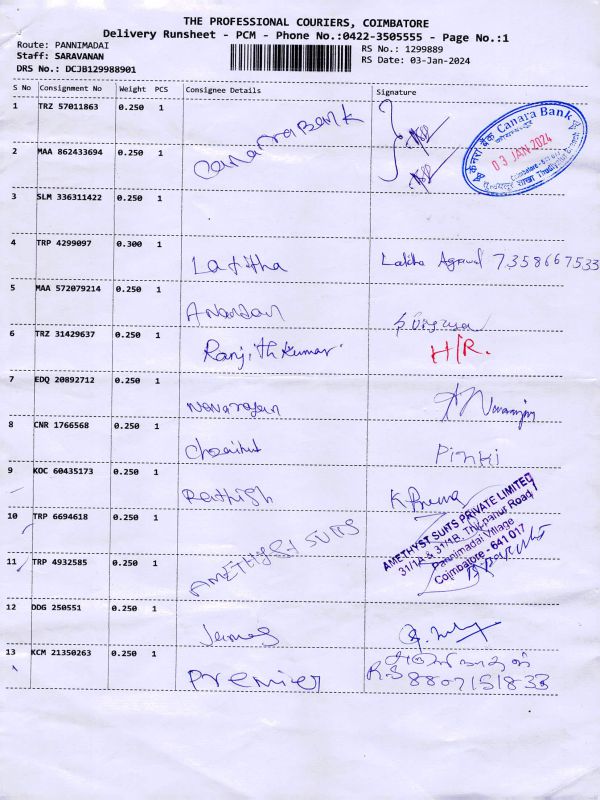 THE PROFESSIONAL COURIERS, COIMBATORE
Delivery Runsheet - PCM - Phone No.:0422-3505555 - Page No.:1
Route: PANNIMADAI
RS No.: 1299889
Staff: SARAVANAN
RS Date: 03-Jan-2024
DRS No.: DCJB129988901
S No Consignment No Weight PCS Consignee Details Signature
1 TRZ 57011863 0.250 1
Canara Bank
केनरा बैंक Canara Bank
03 JAN 2024
2 MAA 862433694 0.250 1
3 SLM 336311422 0.250 1
4 TRP 4299097 0.300 1
Lalitha Agrawal 7358667533
5 MAA 572079214 0.250 1
Anandan
6 TRZ 31429637 0.250 1
Ranjithkumar H/R.
7 EDQ 20892712 0.250 1
Navarajan Navarajan
8 CNR 1766568 0.250 1
PINKI
9 KOC 60435173 0.250 1
Rathish K Prema
10 TRP 6694618 0.250 1
AMETHYST SUITS
AMETHYST SUITS PRIVATE LIMITED
31/1A & 31/1B, Thippanur Road
Pannimadai Village
Coimbatore - 641 017
11 TRP 4932585 0.250 1
12 DDG 250551 0.250 1
James
13 KCM 21350263 0.250 1
Premier
RS 8807151833